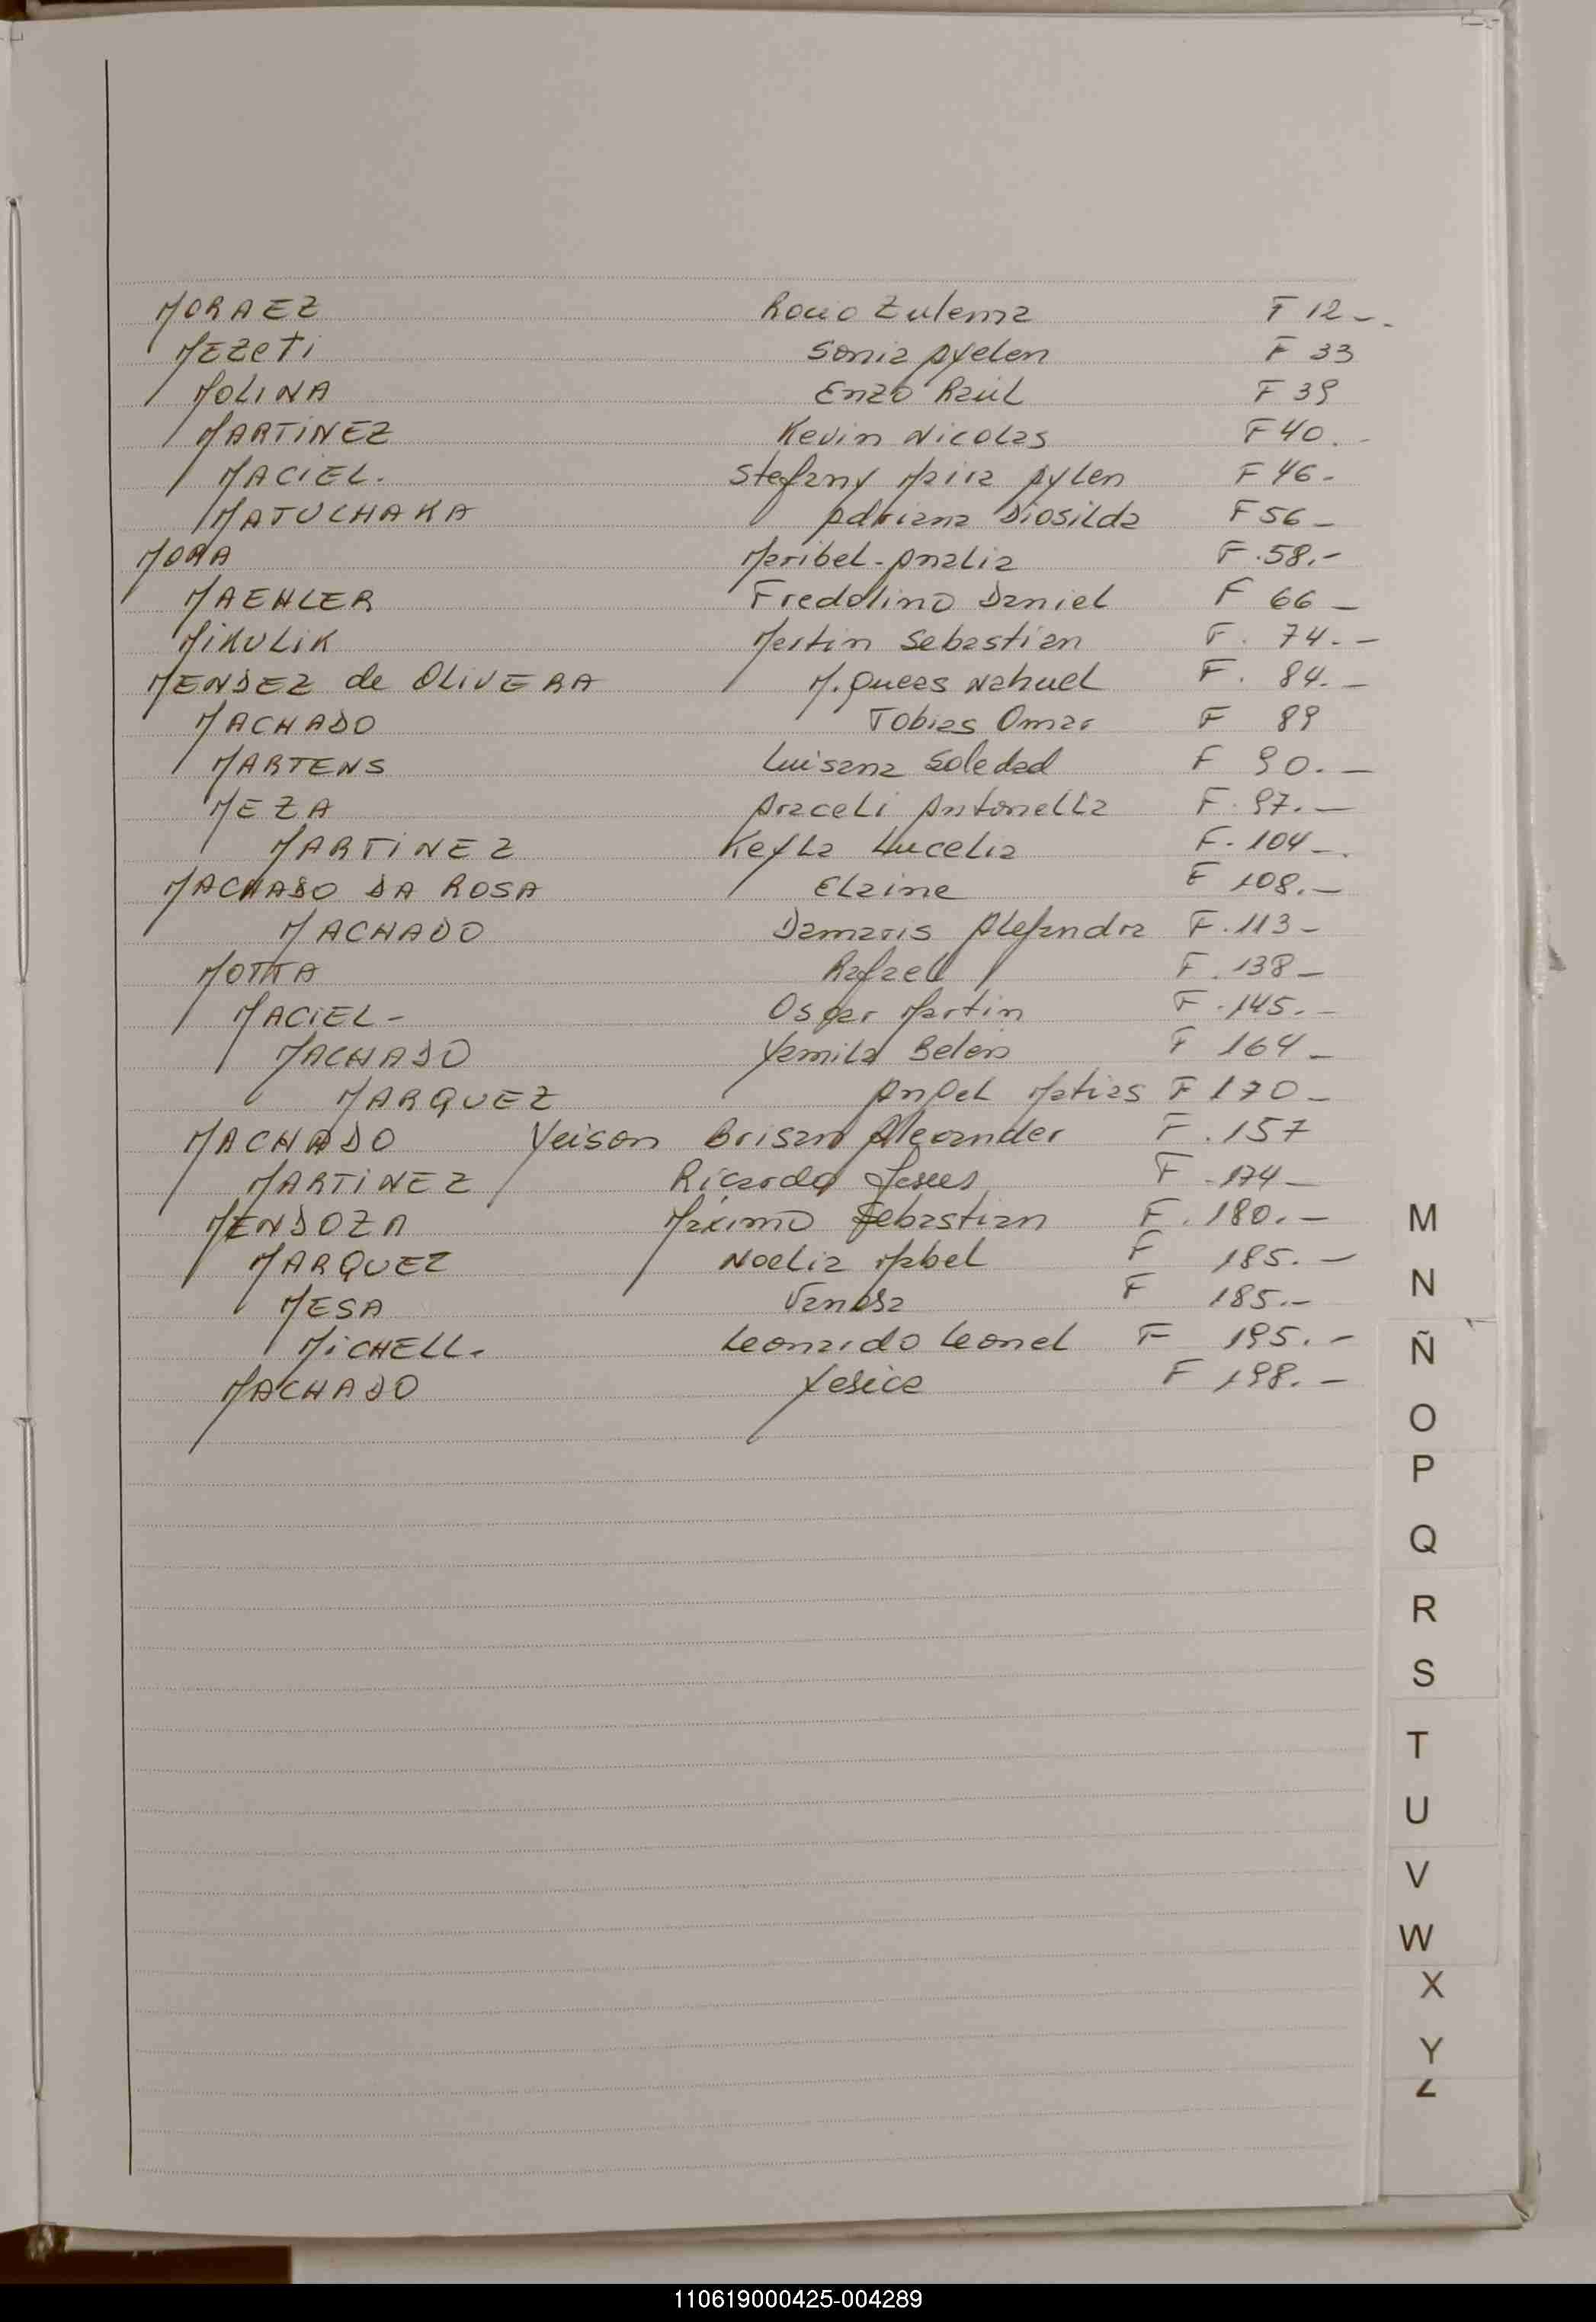 MORAEZ Rocio Zulema F 12-.
MEZETi Sonia Ayelen F 33
MOLINA Enzo Raúl F 39
MARTINEZ Kevin Nicolas F 40.-
MACIEL. Stefany Maira Aylen F 46-
MATULHAKA Adriana Diosilda F 56-
MORA Maribel-Analia F.58.-
MAEHLER Fredolino Daniel F 66-
MIKULIK Martin Sebastian F. 74.-
MENDEZ de OLIVERA M. Nahuel F. 84.-
MACHADO Tobias Omar F 89
MARTENS Luisana Soledad F 90.-
MEZA Araceli Antonella F. 97.-
MARTINEZ Keyla Lucelia F. 104-.
MACHADO DA ROSA Elaine F 108.-
MACHADO Damaris Alejandra F.113-
MOTTA Rafael F. 138-
MACIEL- Oscar Martin F.145.-
MACHADO Yamila Belen F 164-
MARQUEZ Angel Matias F 170-
MACHADO Yeison Brisan Alexander F.157
MARTINEZ Ricardo Jesus F.174-
MENDOZA Maximo Sebastian F.180.-
MARQUEZ Noelia Mabel F 185.-
MESA Vanesa F 185.-
MICHELL. Leonardo Leonel F 195.-
MACHADO Yesica F 198.-
M
N
Ñ
O
P
Q
R
S
T
U
V
W
X
Y
Z
110619000425-004289